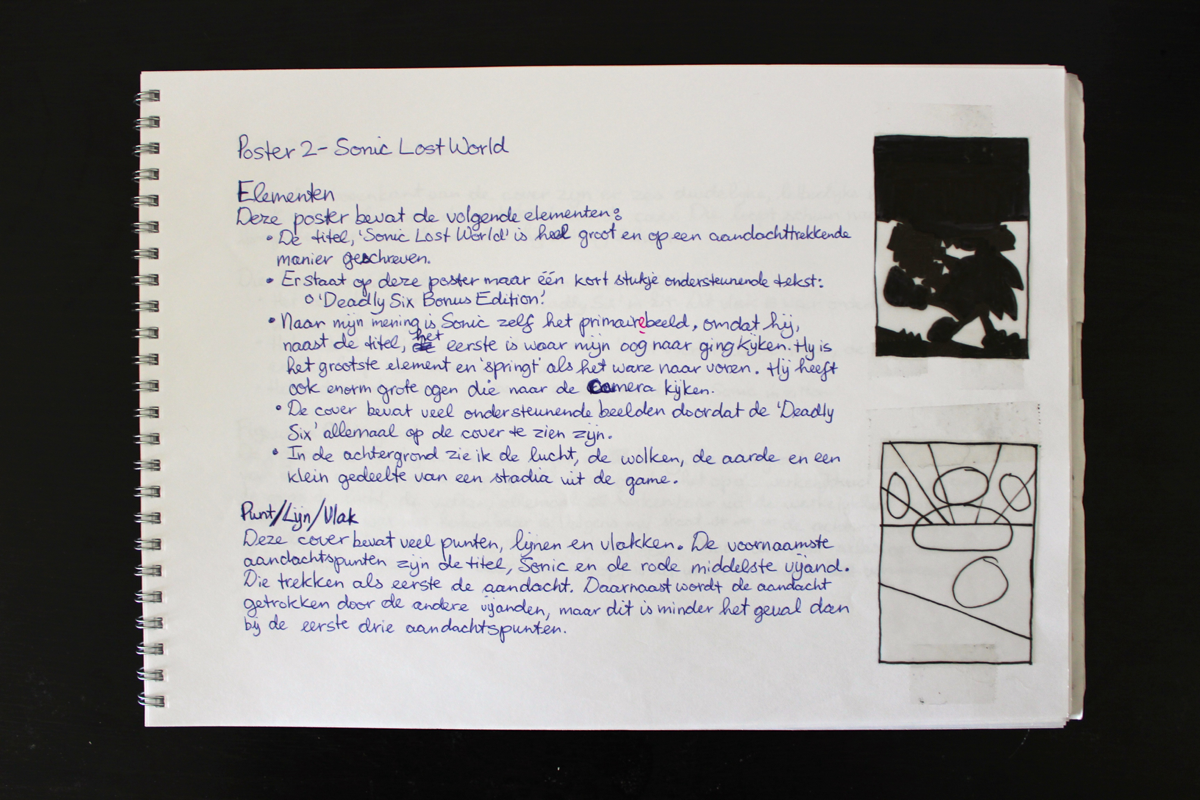 Poster 2 - Sonic Lost World
Elementen
Deze poster bevat de volgende elementen:
• De titel, 'Sonic Lost World' is heel groot en op een aandachttrekkende
manier geschreven.
• Er staat op deze poster maar één kort stukje ondersteunende tekst:
o 'Deadly Six Bonus Edition'.
• Naar mijn mening is Sonic zelf het primaire beeld, omdat hij,
naast de titel, het eerste is waar mijn oog naar ging kijken. Hij is
het grootste element en 'springt' als het ware naar voren. Hij heeft
ook enorm grote ogen die naar de camera kijken.
• De cover bevat veel ondersteunende beelden doordat de 'Deadly
Six' allemaal op de cover te zien zijn.
• In de achtergrond zie ik de lucht, de wolken, de aarde en een
klein gedeelte van een stadia uit de game.
Punt/Lijn/Vlak
Deze cover bevat veel punten, lijnen en vlakken. De voornaamste
aandachtspunten zijn de titel, Sonic en de rode middelste vijand.
Die trekken als eerste de aandacht. Daarnaast wordt de aandacht
getrokken door de andere vijanden, maar dit is minder het geval dan
bij de eerste drie aandachtspunten.